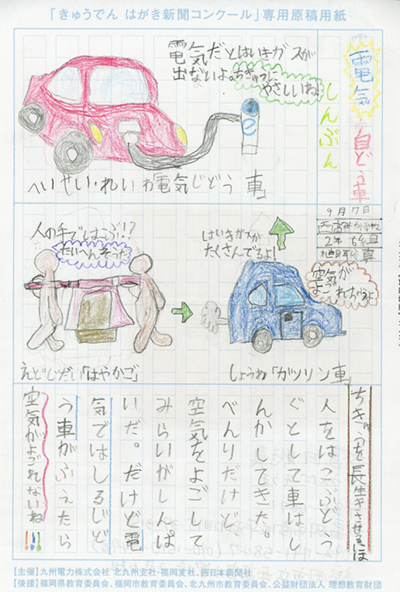 「きゅうでん はがき新聞コンクール」専用原稿用紙
電気
自どう車
しんぶん
9月7日
2年
電気だとはいきガスが
出ないよ。ちきゅうに
やさしいね!
へいせい・れいわ「電気じどう車」
人の手ではこぶ!?
たいへんそう…
えどじだい「はやかご」
はいきガスが
たくさんでるよ!
空気が
よごれちゃうよ
しょうわ「ガソリン車」
ちきゅうを長生きさせるほう
人をはこぶどう
ぐとして車はし
んかしてきた。
べんりだけど
空気をよごして
みらいがしんぱ
いだ。だけど電
気ではしるじど
う車がふえたら
空気がよごれないね!!!
【主催】九州電力株式会社 北九州支社・福岡支社、西日本新聞社
【後援】福岡県教育委員会、福岡市教育委員会、北九州市教育委員会、公益財団法人 理想教育財団